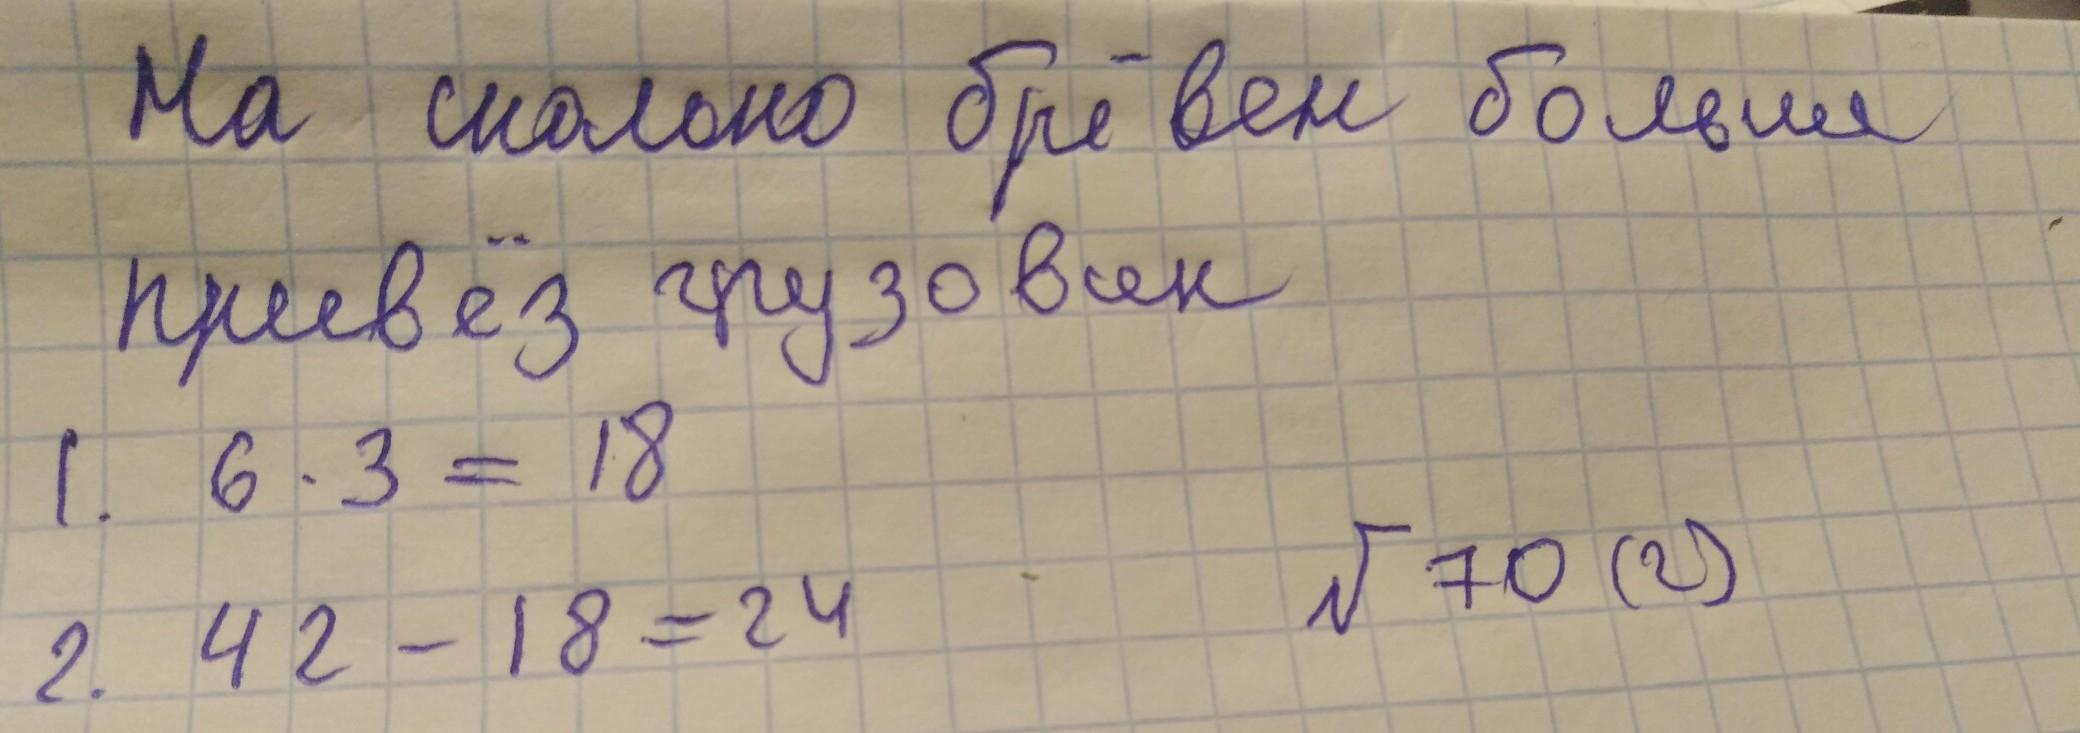 На сколько брёвен больше
привёз грузовик
1. 6 · 3 = 18
√70 (2)
2. 42 - 18 = 24